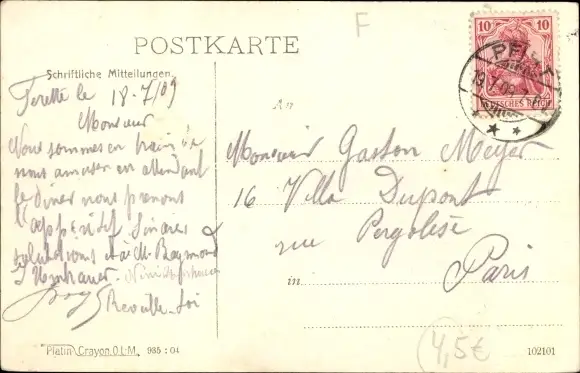 F
POSTKARTE
Schriftliche Mitteilungen
Ferette le 18-7/09
Monsieur
Nous sommes en train de
nous amuser en attendant
le dîner nous prenons
l'apperitif Sincères
salutations et à M. Raymond
Reveille-toi
An
Monsieur Gaston Meyer
16 Villa Dupont
rue Pergolèse
in Paris
10 10
DEUTSCHES REICH
PFIRT
19.7.09.7-8
Platin Crayon.O.L.M. 935 : 04
4,5€
102101